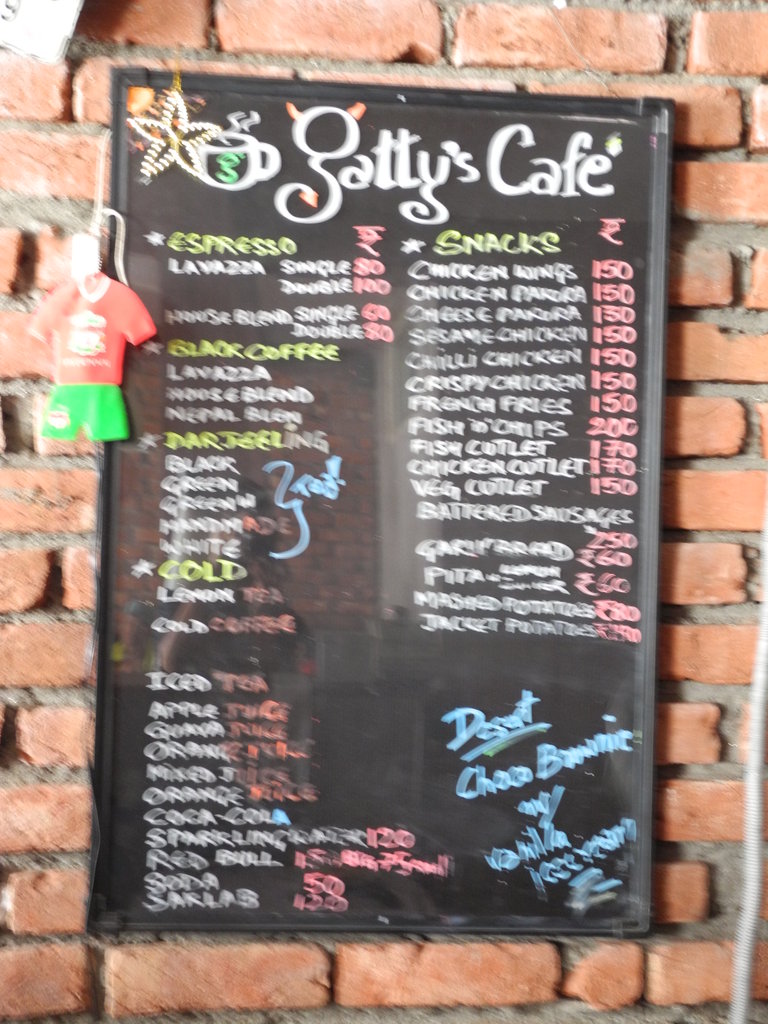 9
Gatty's Café
* ESPRESSO ₹
LAVAZZA SINGLE 80
DOUBLE 100
HOUSE BLEND SINGLE 60
DOUBLE 80
* BLACK COFFEE
LAVAZZA
HOUSE BLEND
NEPAL BLEN
* DARJEELING
BLACK
GREEN
GREEN W
HANDMADE
WHITE
* COLD
LEMON TEA
COLD COFFEE
ICED TEA
APPLE JUICE
GUAVA JUICE
ORANGE JUICE
MIXED JUICE
ORANGE JUICE
COCA-COLA
SPARKLING WATER 120
RED BULL
SODA 50
SARLAB 120
* SNACKS ₹
CHICKEN WINGS 150
CHICKEN PAKORA 150
CHEESE PAKORA 150
SESAME CHICKEN 150
CHILLI CHICKEN 150
CRISPY CHICKEN 150
FRENCH FRIES 150
FISH 'n' CHIPS 200
FISH CUTLET 170
CHICKEN CUTLET 170
VEG CUTLET 150
BATTERED SAUSAGES
250
GARLIC BREAD ₹60
PITA ₹60
MASHED POTATOES ₹80
JACKET POTATOES
Desert
Choco Brownie
w/
vanilla